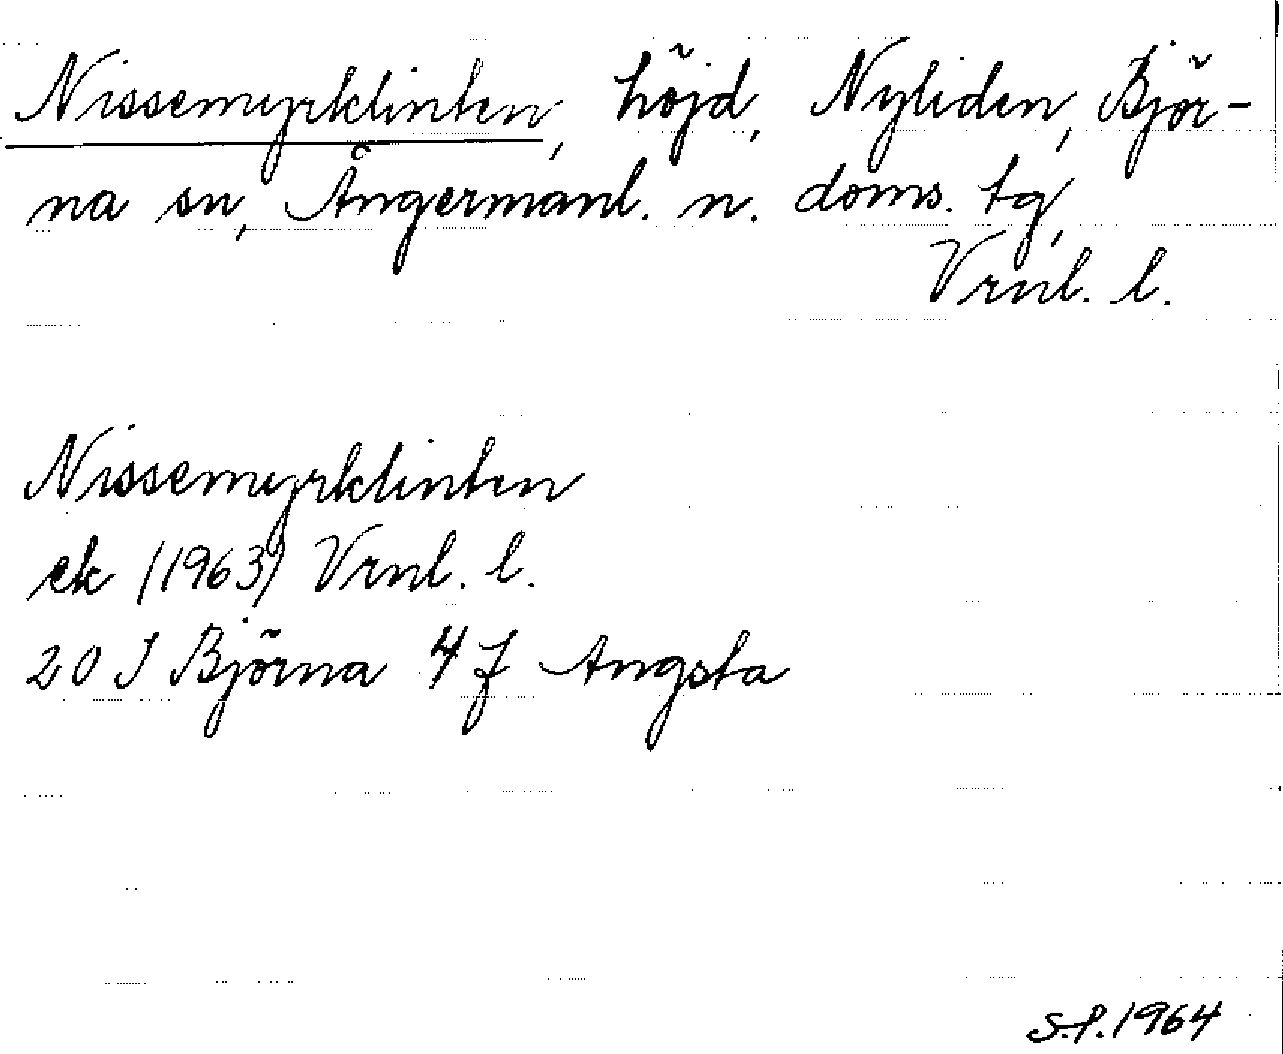 Nissemyrklinten, höjd, Nyliden, Björ-
na sn, Ångermanl. n. doms. tg,
Vrnl. l.
Nissemyrklinten
ek (1963) Vrnl. l.
20 J Björna 4 f Angsta
S.P. 1964